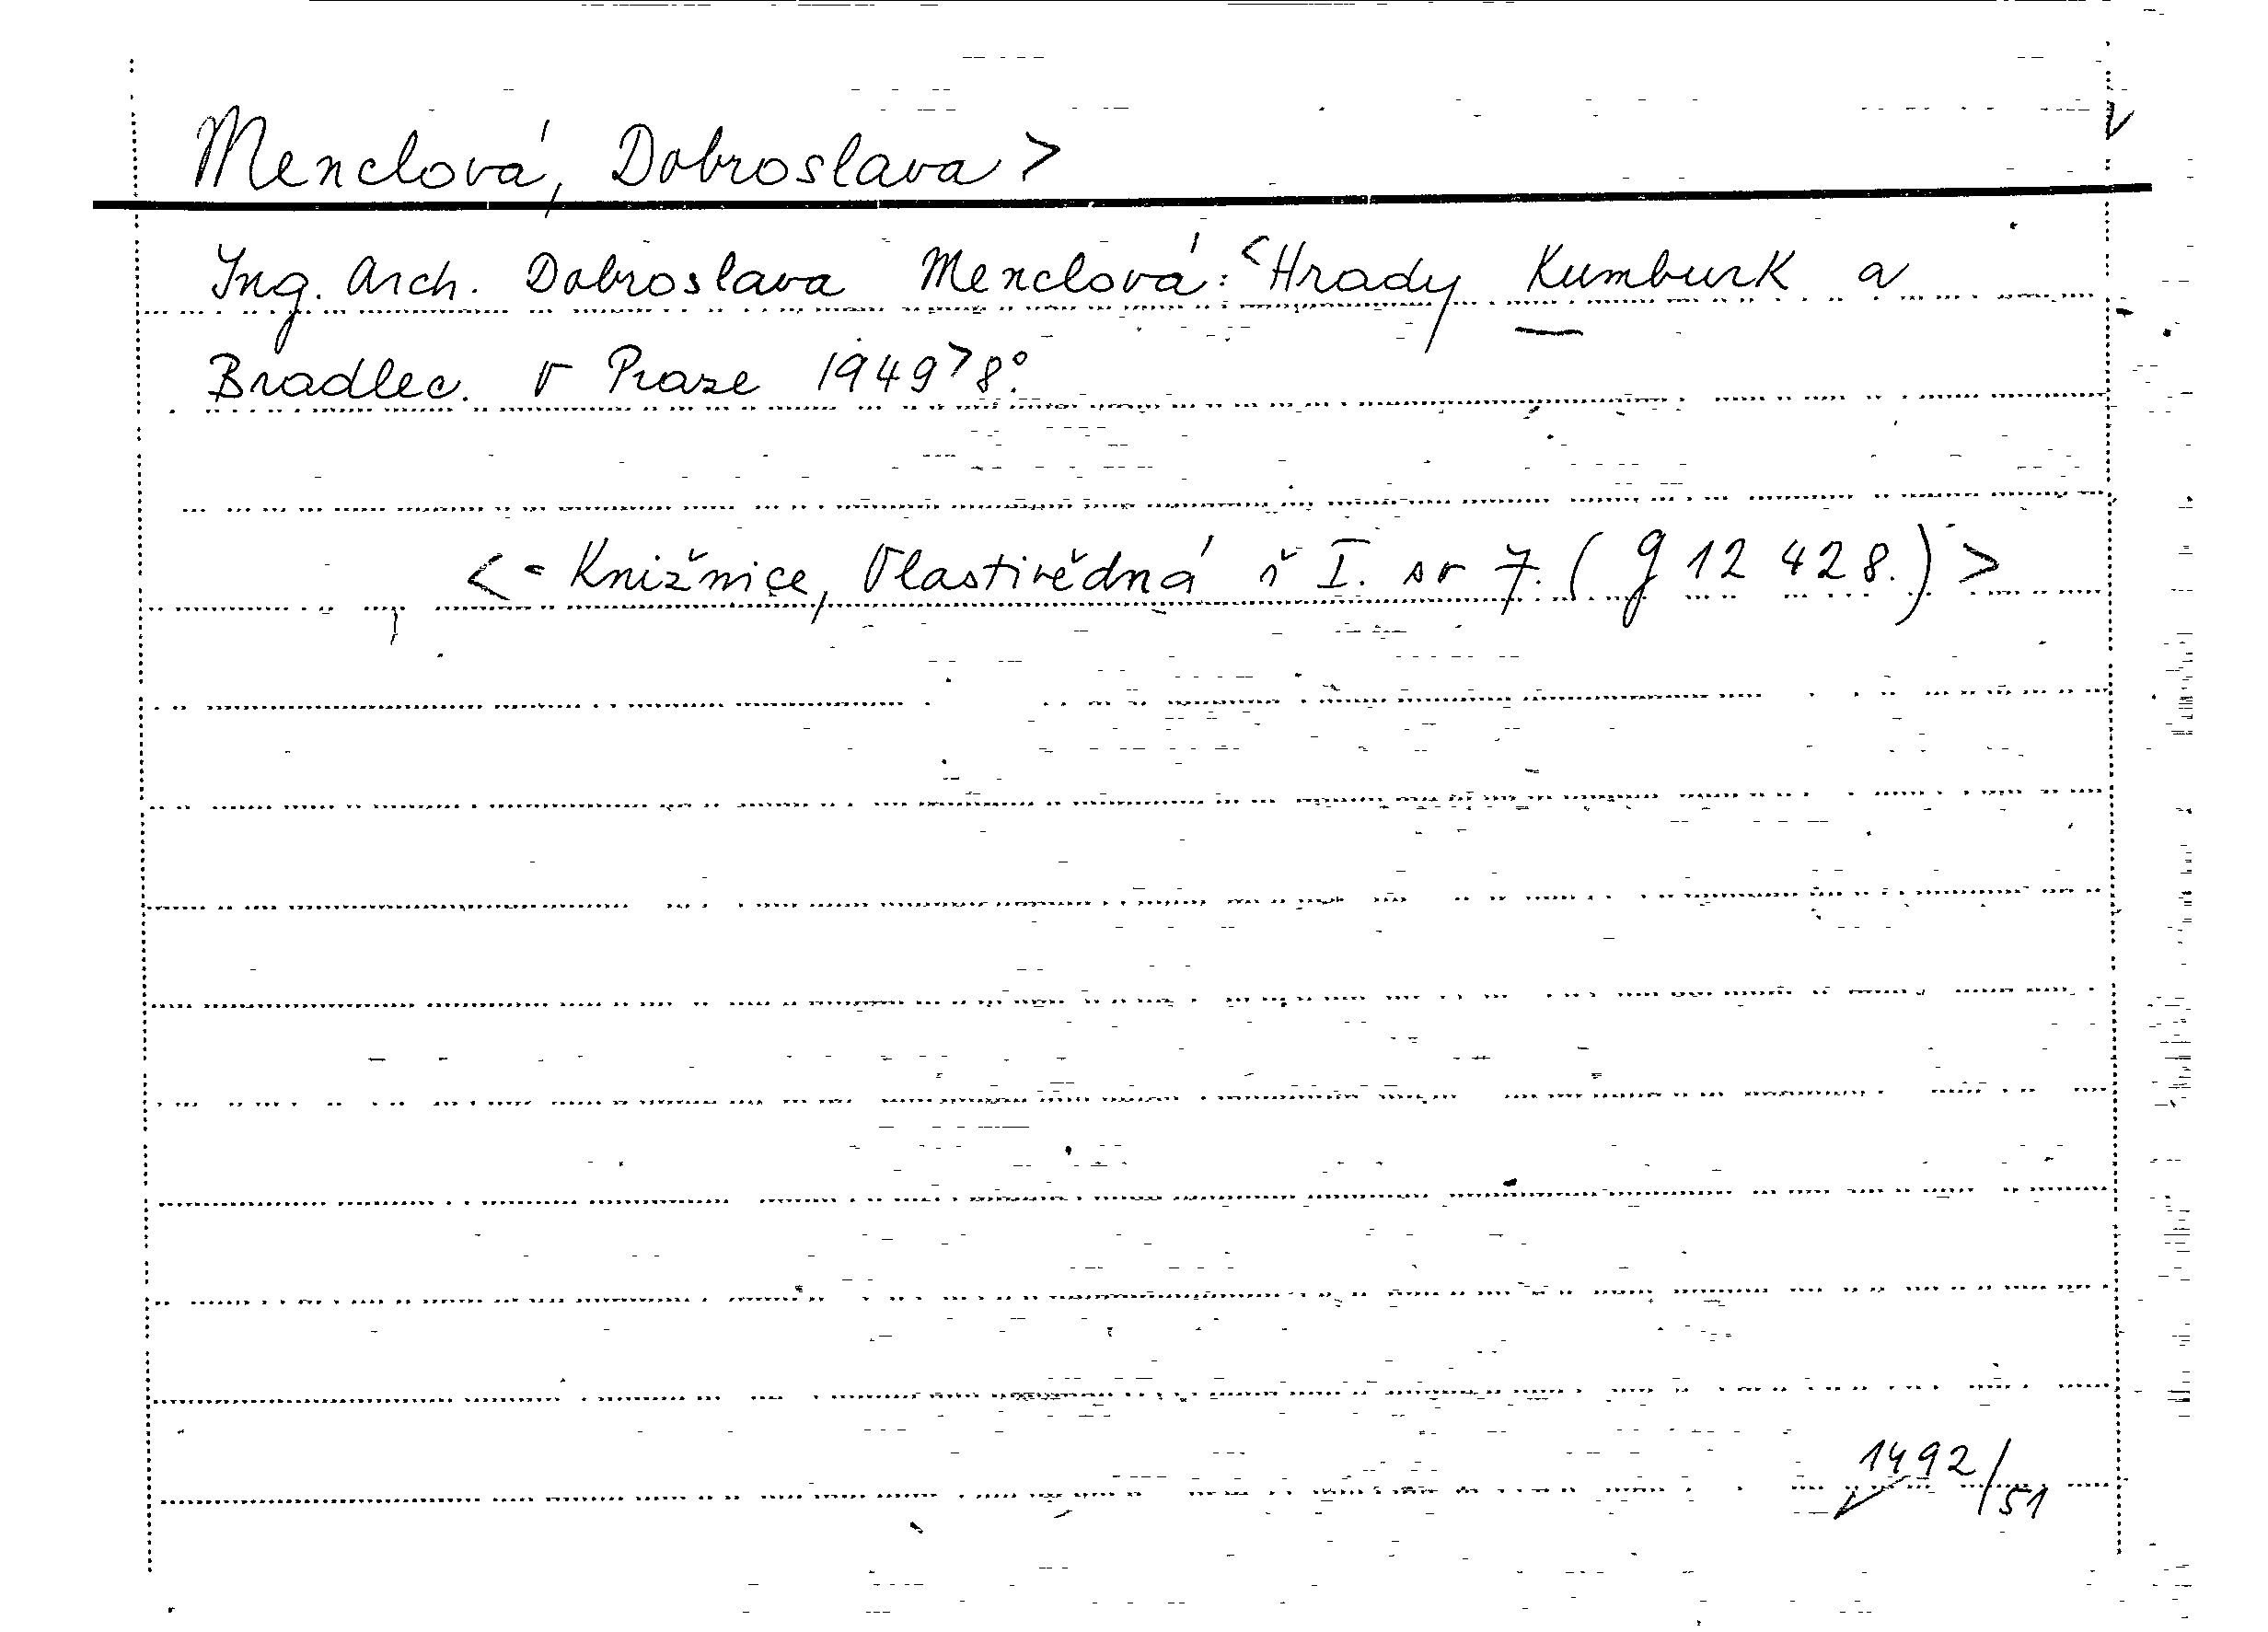 Menclová, Dobroslava >
Ing. Arch. Dobroslava Menclová: <Hrady Kumburk a
Bradlec. V Praze 1949> 8°.
< = Knižnice, Vlastivědná ř I. sv 7. ( g 12 428.) >
1492/51